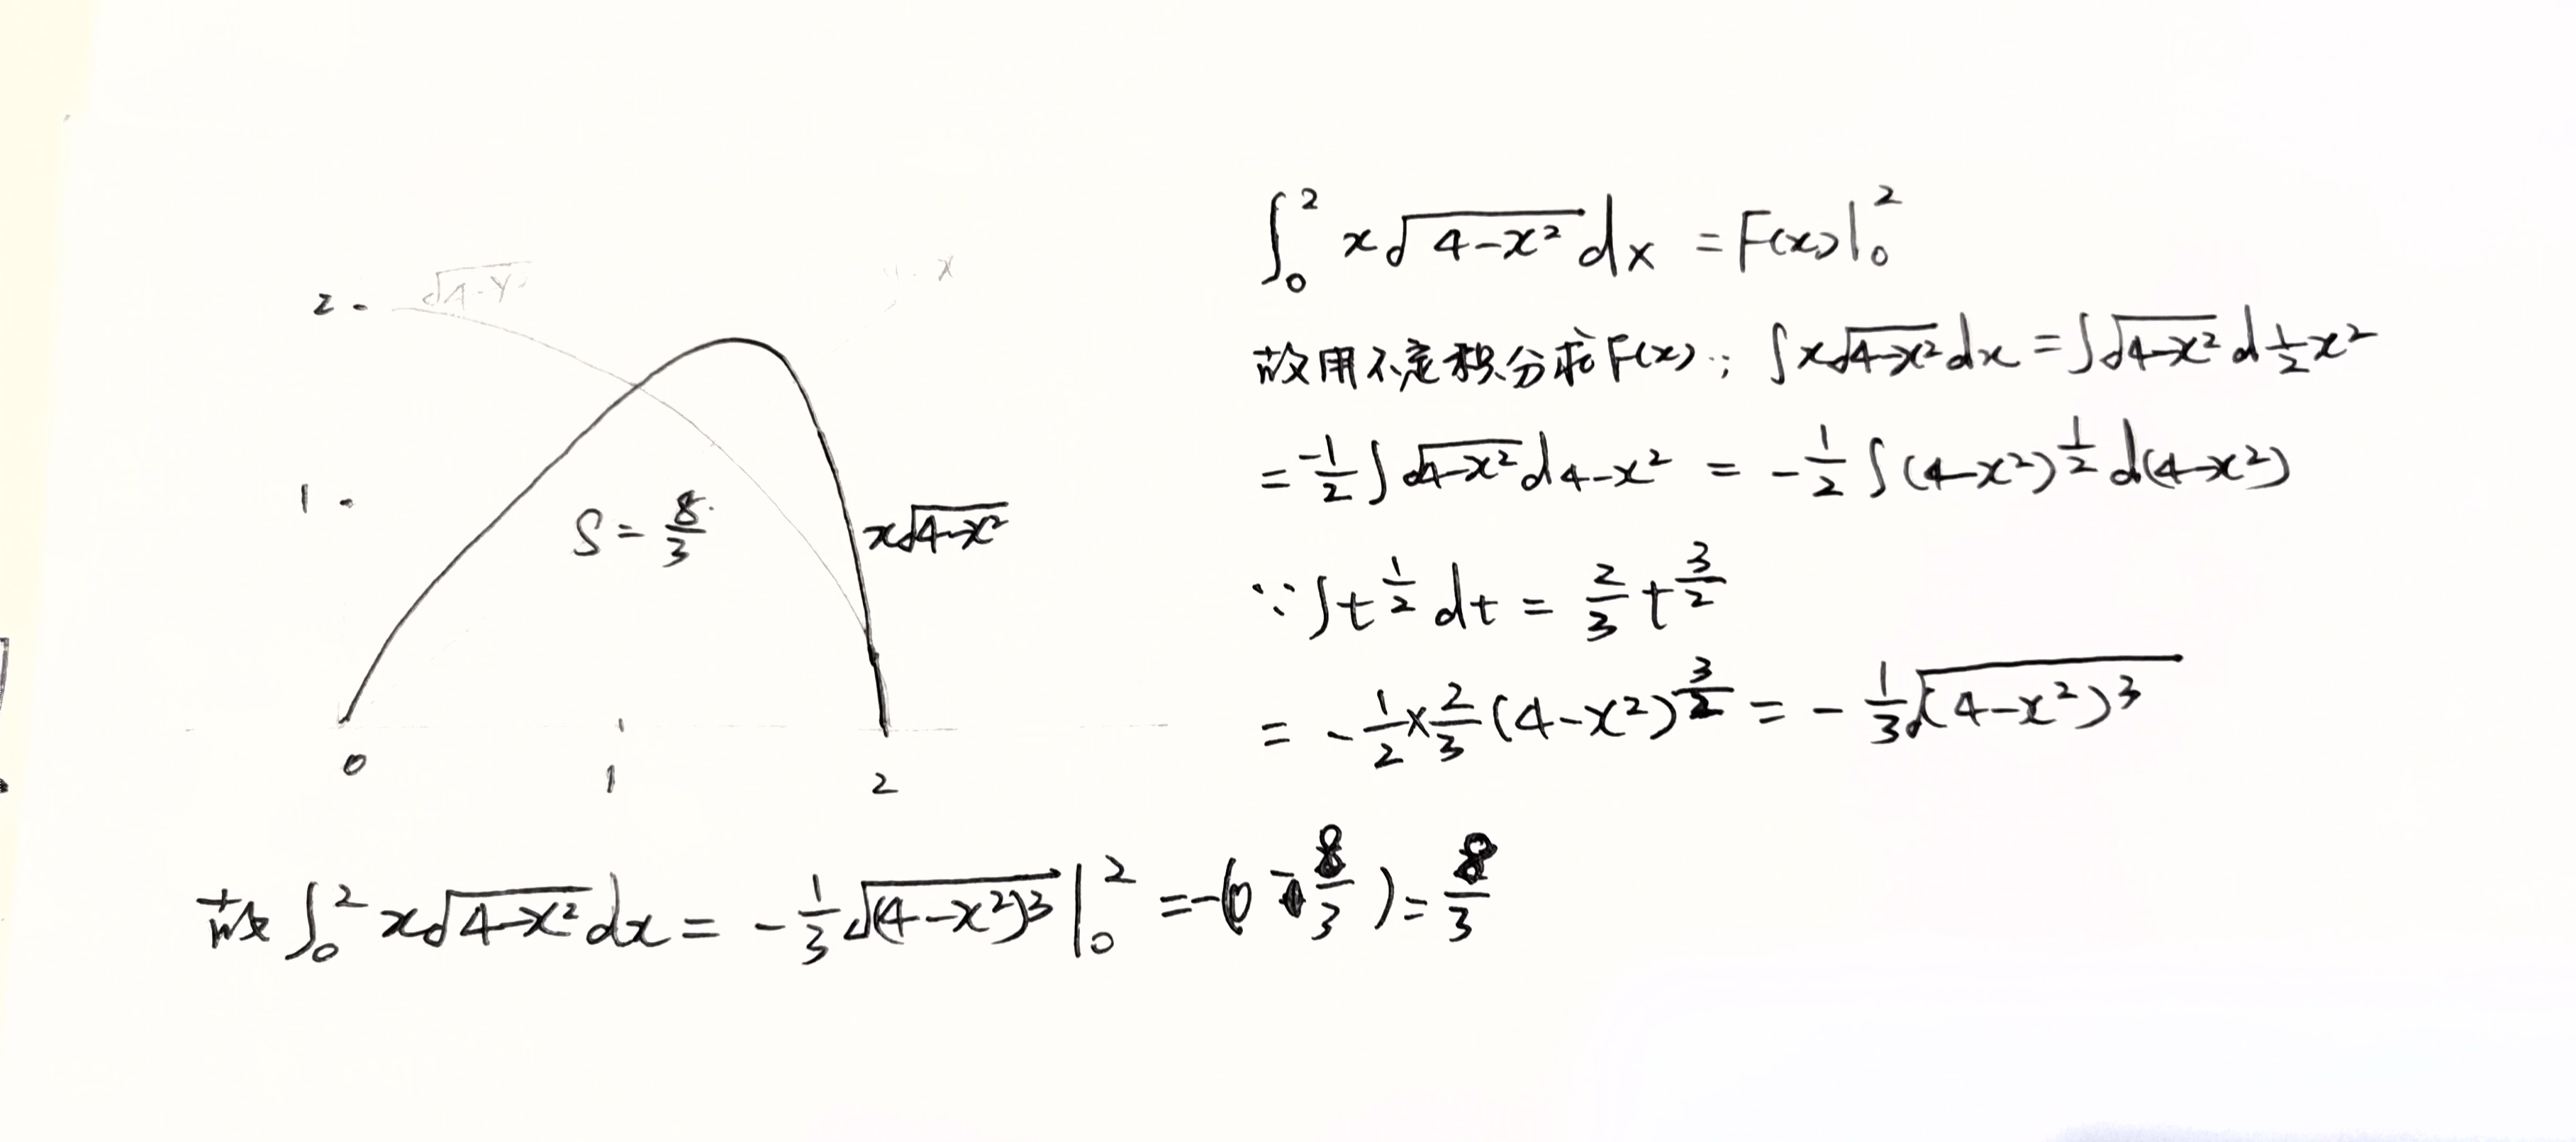 2
√4-y²
x
1
S = 8/3
x√4-x²
0
1
2
∫₀² x√4-x² dx = F(x)|₀²
故用不定积分求F(x)∵ ∫x√4-x² dx = ∫√4-x² d½x²
= -1/2 ∫√4-x² d4-x² = -1/2 ∫(4-x²)^1/2 d(4-x²)
∵ ∫t^1/2 dt = 2/3 t^3/2
= -1/2 × 2/3 (4-x²)^3/2 = -1/3 √(4-x²)³
故 ∫₀² x√4-x² dx = -1/3 √(4-x²)³ |₀² = -(0 - 8/3) = 8/3